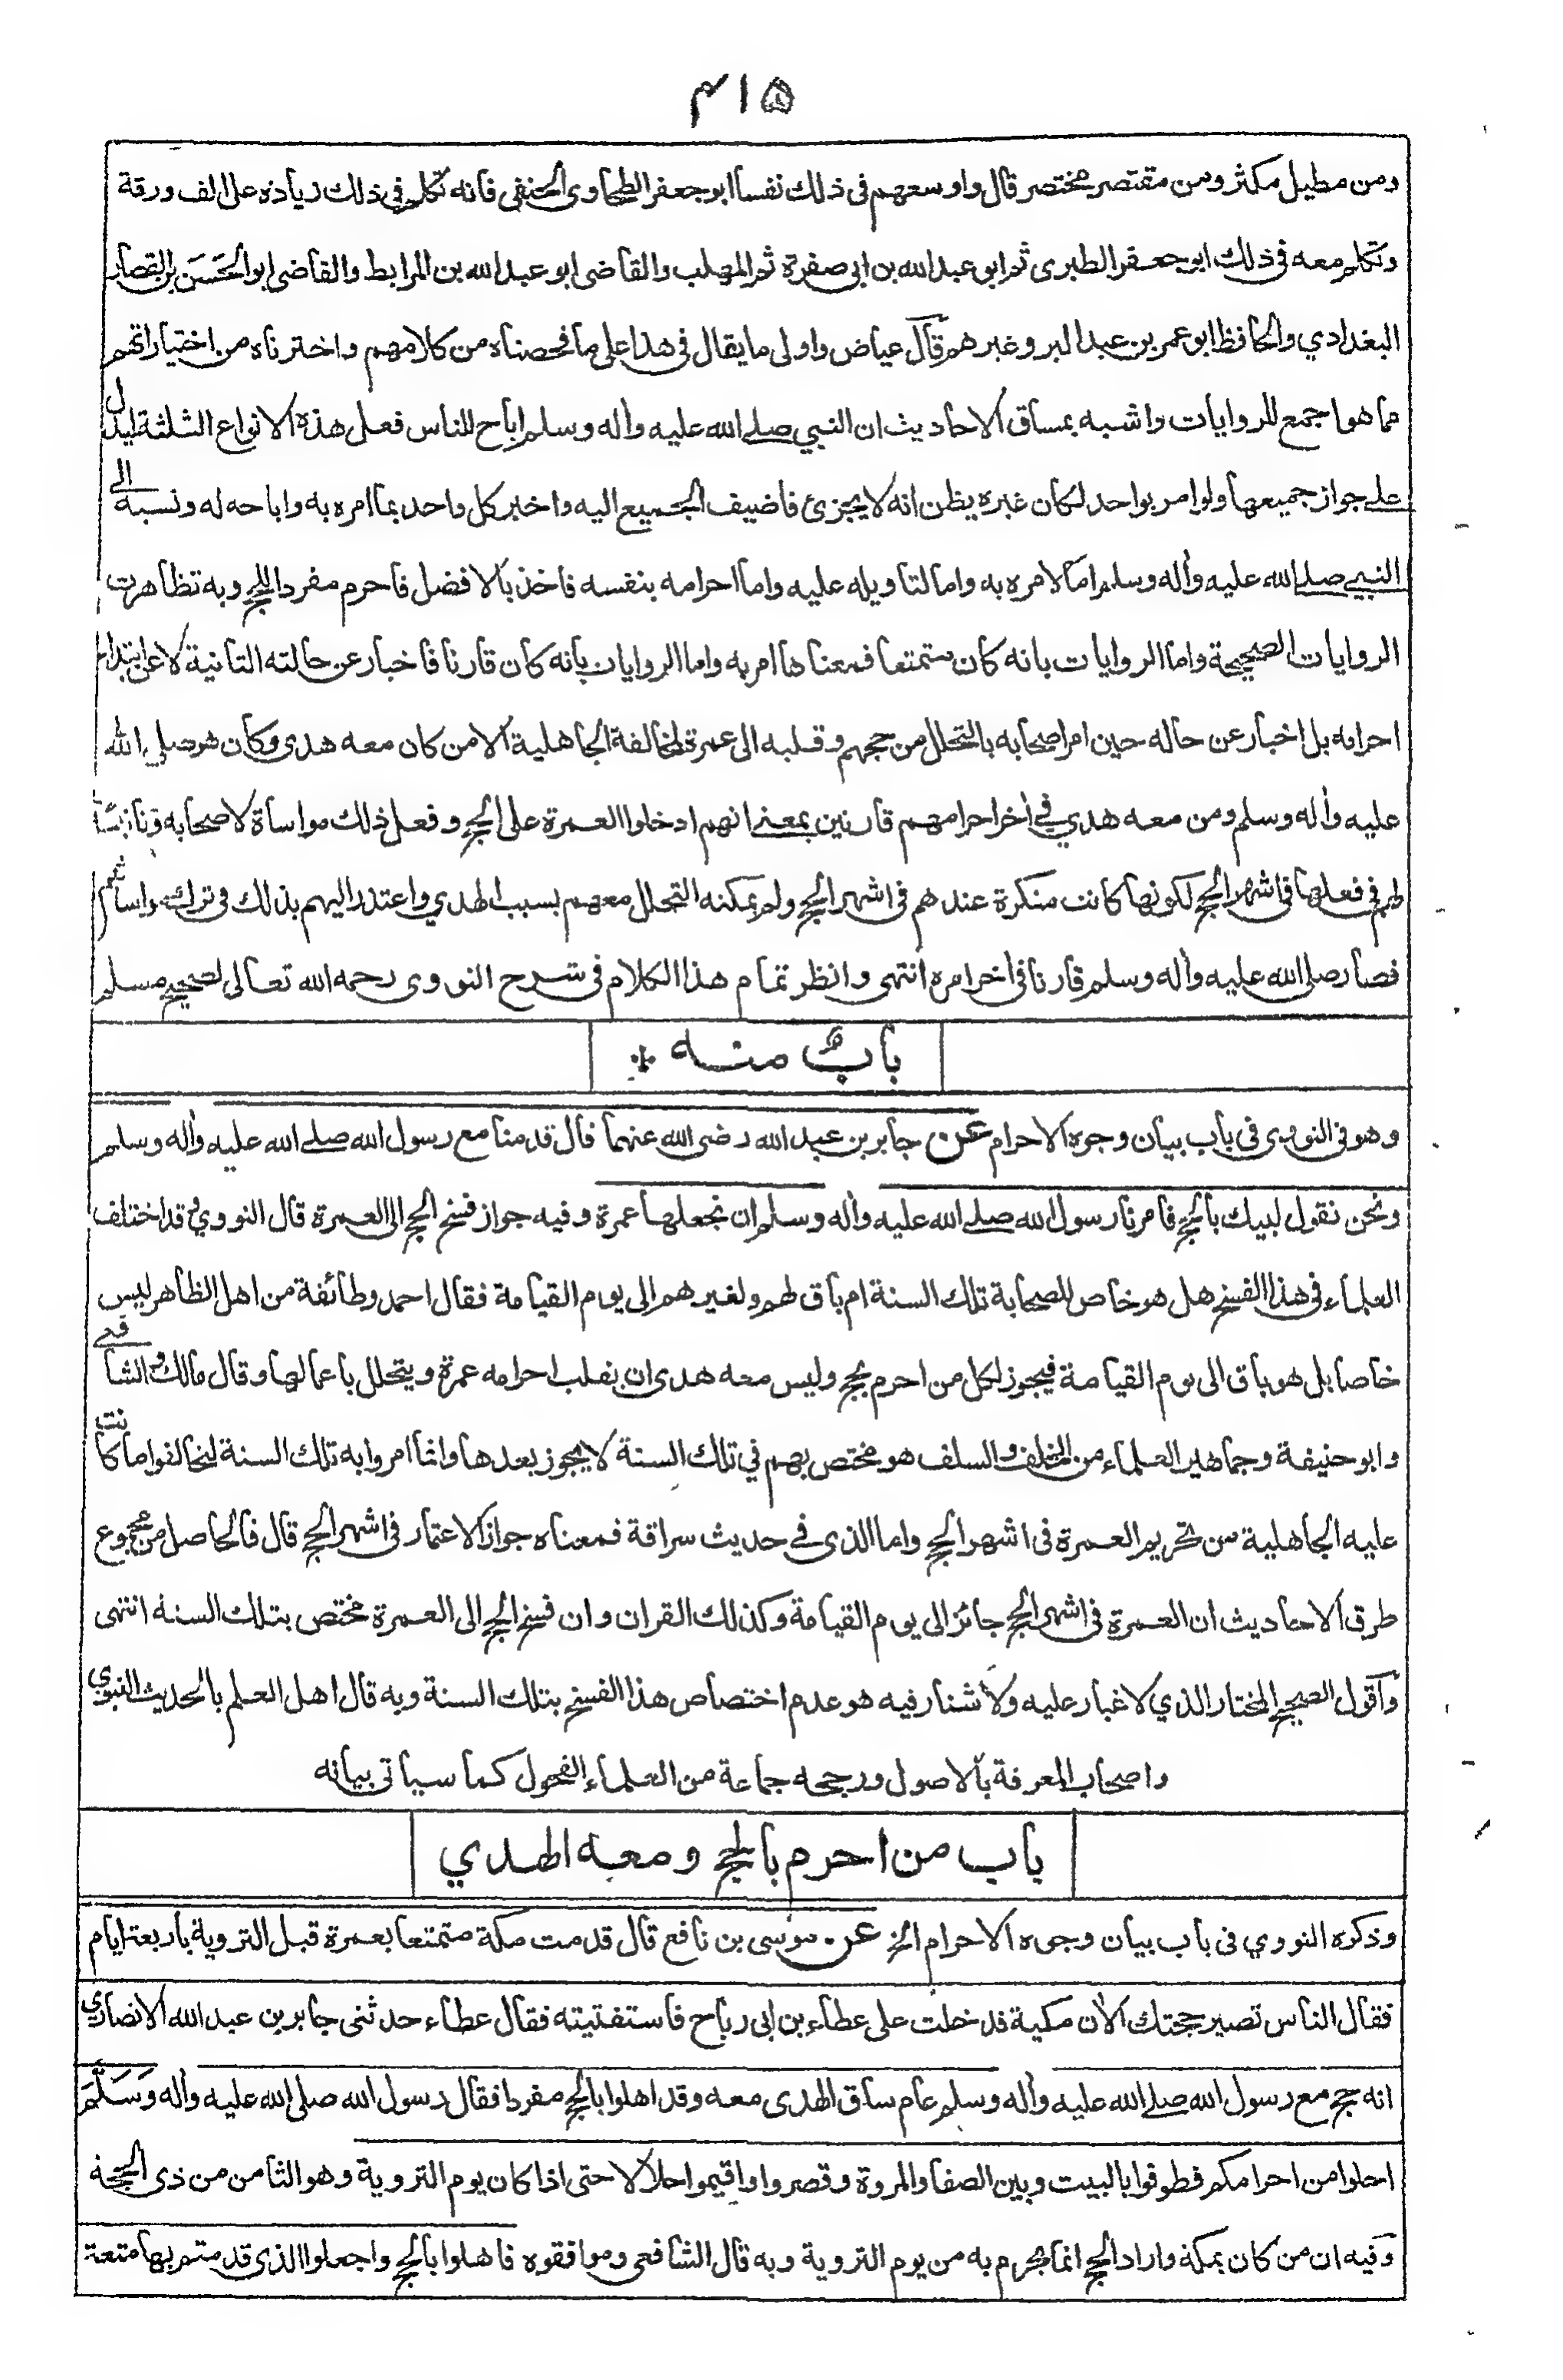 ۴۱۵
ومن مطيل مكثر ومن مقتصر مختصر قال واوسعهم فى ذلك نفسا ابو جعفر الطحاوى الحنفى فانه تكلم فى ذلك زيادة على الف ورقة
وتكلم معه فى ذلك ابو جعفر الطبرى ثم ابو عبد الله بن ابى صفرة ثم المهلب والقاضى ابو عبد الله بن المرابط والقاضى ابو الحَسَن بن القصار
البغدادي والحافظ ابو عمر بن عبد البر وغيرهم قال عياض واولى ما يقال فى هذا على ما فحصناه من كلامهم واخترناه من اختياراتهم
مما هو اجمع للروايات واشبه بمساق الاحاديث ان النبي صلے الله عليه واٰله وسلم اباح للناس فعل هذه الانواع الثلثة ليدل
علے جواز جميعها ولو امر بواحد لكان غيره يظن انه لا يجزئ فاضيف الجميع اليه واخبر كل واحد بما امره به واباحه له ونسبه الى
النبي صلے الله عليه واٰله وسلم اما لامره به واما لتاويله عليه واما احرامه بنفسه فاخذ بالافضل فاحرم مفردا للحج وبه تظاهرت
الروايات الصحيحة واما الروايات بانه كان متمتعا فمعناها امر به واما الروايات بانه كان قارنا فاخبار عن حالته الثانية لا عن ابتداء
احرامه بل اخبار عن حاله حين امر اصحابه بالتحلل من حجهم وقلبه الى عمرة لمخالفة الجاهلية الا من كان معه هدى وكان هو صلى الله
عليه واٰله وسلم ومن معه هدي في اٰخر احرامهم قارنين بمعنے انهم ادخلوا العمرة على الحج وفعل ذلك مواساة لاصحابه وتانيسا
لهم فى فعلها فى اشهر الحج لكونها كانت منكرة عندهم فى اشهر الحج ولم يمكنه التحلل معهم بسبب الهدي واعتذر اليهم بذلك فى ترك مواساتهم
فصار صلى الله عليه واٰله وسلم قارنا فى اٰخر امره انتهى وانظر تمام هذا الكلام فى شرح النووى رحمه الله تعالى لصحيح مسلم
باب منه
وهو فى النووى فى باب بيان وجوه الاحرام عن جابر بن عبد الله رضى الله عنهما قال قدمنا مع رسول الله صلے الله عليه واٰله وسلم
ونحن نقول لبيك بالحج فامرنا رسول الله صلے الله عليه واٰله وسلم ان نجعلها عمرة وفيه جواز فسخ الحج الى العمرة قال النووي وقد اختلف
العلماء فى هذا الفسخ هل هو خاص للصحابة تلك السنة ام باق لهم ولغيرهم الى يوم القيامة فقال احمد وطائفة من اهل الظاهر ليس
خاصا بل هو باق الى يوم القيامة فيجوز لكل من احرم بحج وليس معه هدى ان يقلب احرامه عمرة ويتحلل باعمالها وقال مالك والشافعي
وابو حنيفة وجماهير العلماء من الخلف والسلف هو مختص بهم في تلك السنة لا يجوز بعدها وانما امروا به تلك السنة ليخالفوا ما كانت
عليه الجاهلية من تحريم العمرة فى اشهر الحج واما الذى فے حديث سراقة فمعناه جواز الاعتمار فى اشهر الحج قال فالحاصل من مجموع
طرق الاحاديث ان العمرة فى اشهر الحج جائز الى يوم القيامة وكذلك القران وان فسخ الحج الى العمرة مختص بتلك السنة انتهى
واقول الصحيح المختار الذي لا غبار عليه ولا شنار فيه هو عدم اختصاص هذا الفسخ بتلك السنة وبه قال اهل العلم بالحديث النبوي
واصحاب المعرفة بالاصول ورجحه جماعة من العلماء الفحول كما سياتى بيانه
باب من احرم بالحج ومعه الهدي
وذكره النووي فى باب بيان وجوه الاحرام الخ عن موسى بن نافع قال قدمت مكة متمتعا بعمرة قبل التروية باربعة ايام
فقال الناس تصير حجتك الاٰن مكية فدخلت على عطاء بن ابى رباح فاستفتيته فقال عطاء حدثنى جابر بن عبد الله الانصاري
انه حج مع رسول الله صلے الله عليه واٰله وسلم عام ساق الهدى معه وقد اهلوا بالحج مفردا فقال رسول الله صلى الله عليه واٰله وَسَلَّمَ
احلوا من احرامكم فطوفوا بالبيت وبين الصفا والمروة وقصروا واقيموا حلالا حتى اذا كان يوم التروية وهو الثامن من ذى الحجة
وفيه ان من كان بمكة واراد الحج انما يحرم به من يوم التروية وبه قال الشافعى وموافقوه فاهلوا بالحج واجعلوا الذى قدمتم بها متعة